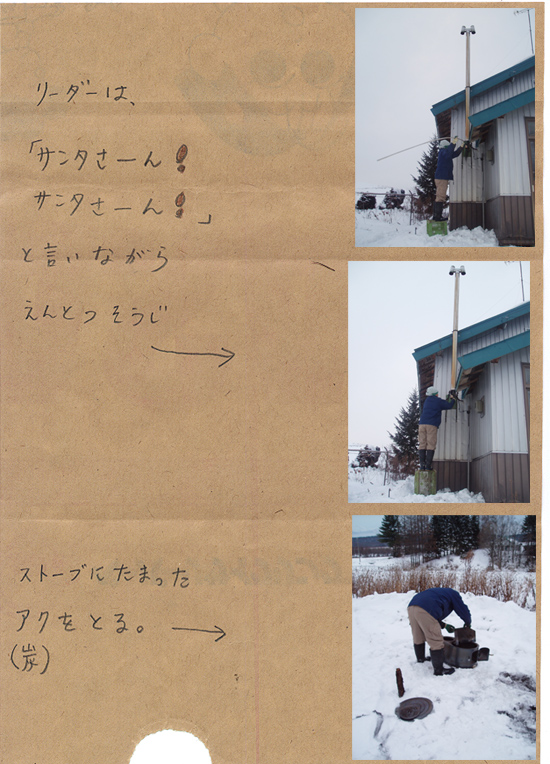 リーダーは、
「サンタさーん！
サンタさーん！」
と言いながら
えんとつそうじ
ストーブにたまった
アクをとる。
(炭)